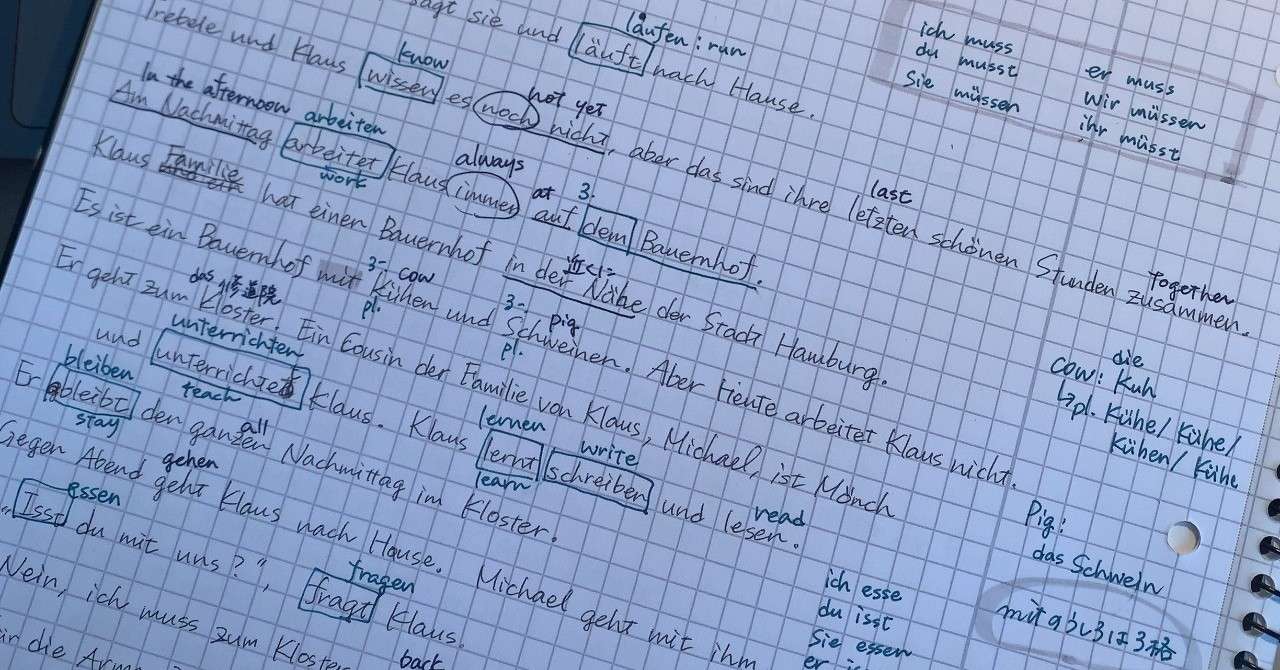 sagt sie und läuft nach Hause.
läufen : run
Trebele und Klaus wissen es noch nicht, aber das sind ihre letzten schönen Stunden zusammen.
know
not yet
last
together
In the afternoon
arbeiten
Am Nachmittag arbeitet Klaus immer auf dem Bauernhof.
work
always
at
3.
Klaus Familie hat einen Bauernhof in der Nähe der Stadt Hamburg.
近くに
Es ist ein Bauernhof mit Kühen und Schweinen. Aber Heute arbeitet Klaus nicht.
3- cow
pl.
3- pig
pl.
Er geht zum Kloster. Ein Cousin der Familie von Klaus, Michael, ist Mönch
das 修道院
und unterrichtet Klaus. Klaus lernt schreiben und lesen.
unterrichten
teach
lernen
learn
write
read
Er bleibt den ganzen Nachmittag im Kloster.
bleiben
stay
all
Gegen Abend geht Klaus nach Hause. Michael geht mit ihm
gehen
"Isst du mit uns?", fragt Klaus.
essen
fragen
Nein, ich muss zum Kloster
back
die
ich muss
du musst
Sie müssen
er muss
wir müssen
ihr müsst
die
cow: Kuh
↳pl. Kühe/Kühe/
Kühen/Kühe
Pig:
das Schwein
mitのうしろは3格
ich esse
du isst
Sie essen
er